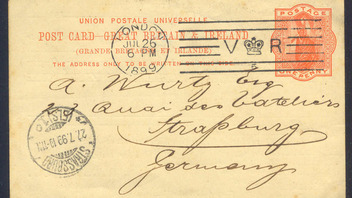 UNION POSTALE UNIVERSELLE
POST CARD—GREAT BRITAIN & IRELAND
(GRANDE BRETAGNE ET IRLANDE)
THE ADDRESS ONLY TO BE WRITTEN ON THIS SIDE.
POSTAGE
ONE PENNY
LONDON
JUL 26
6 PM
1899
V R
A. Wurtz Esq
Quai des Bateliers
Straßburg
Germany
STRASSBURG
27.7.99